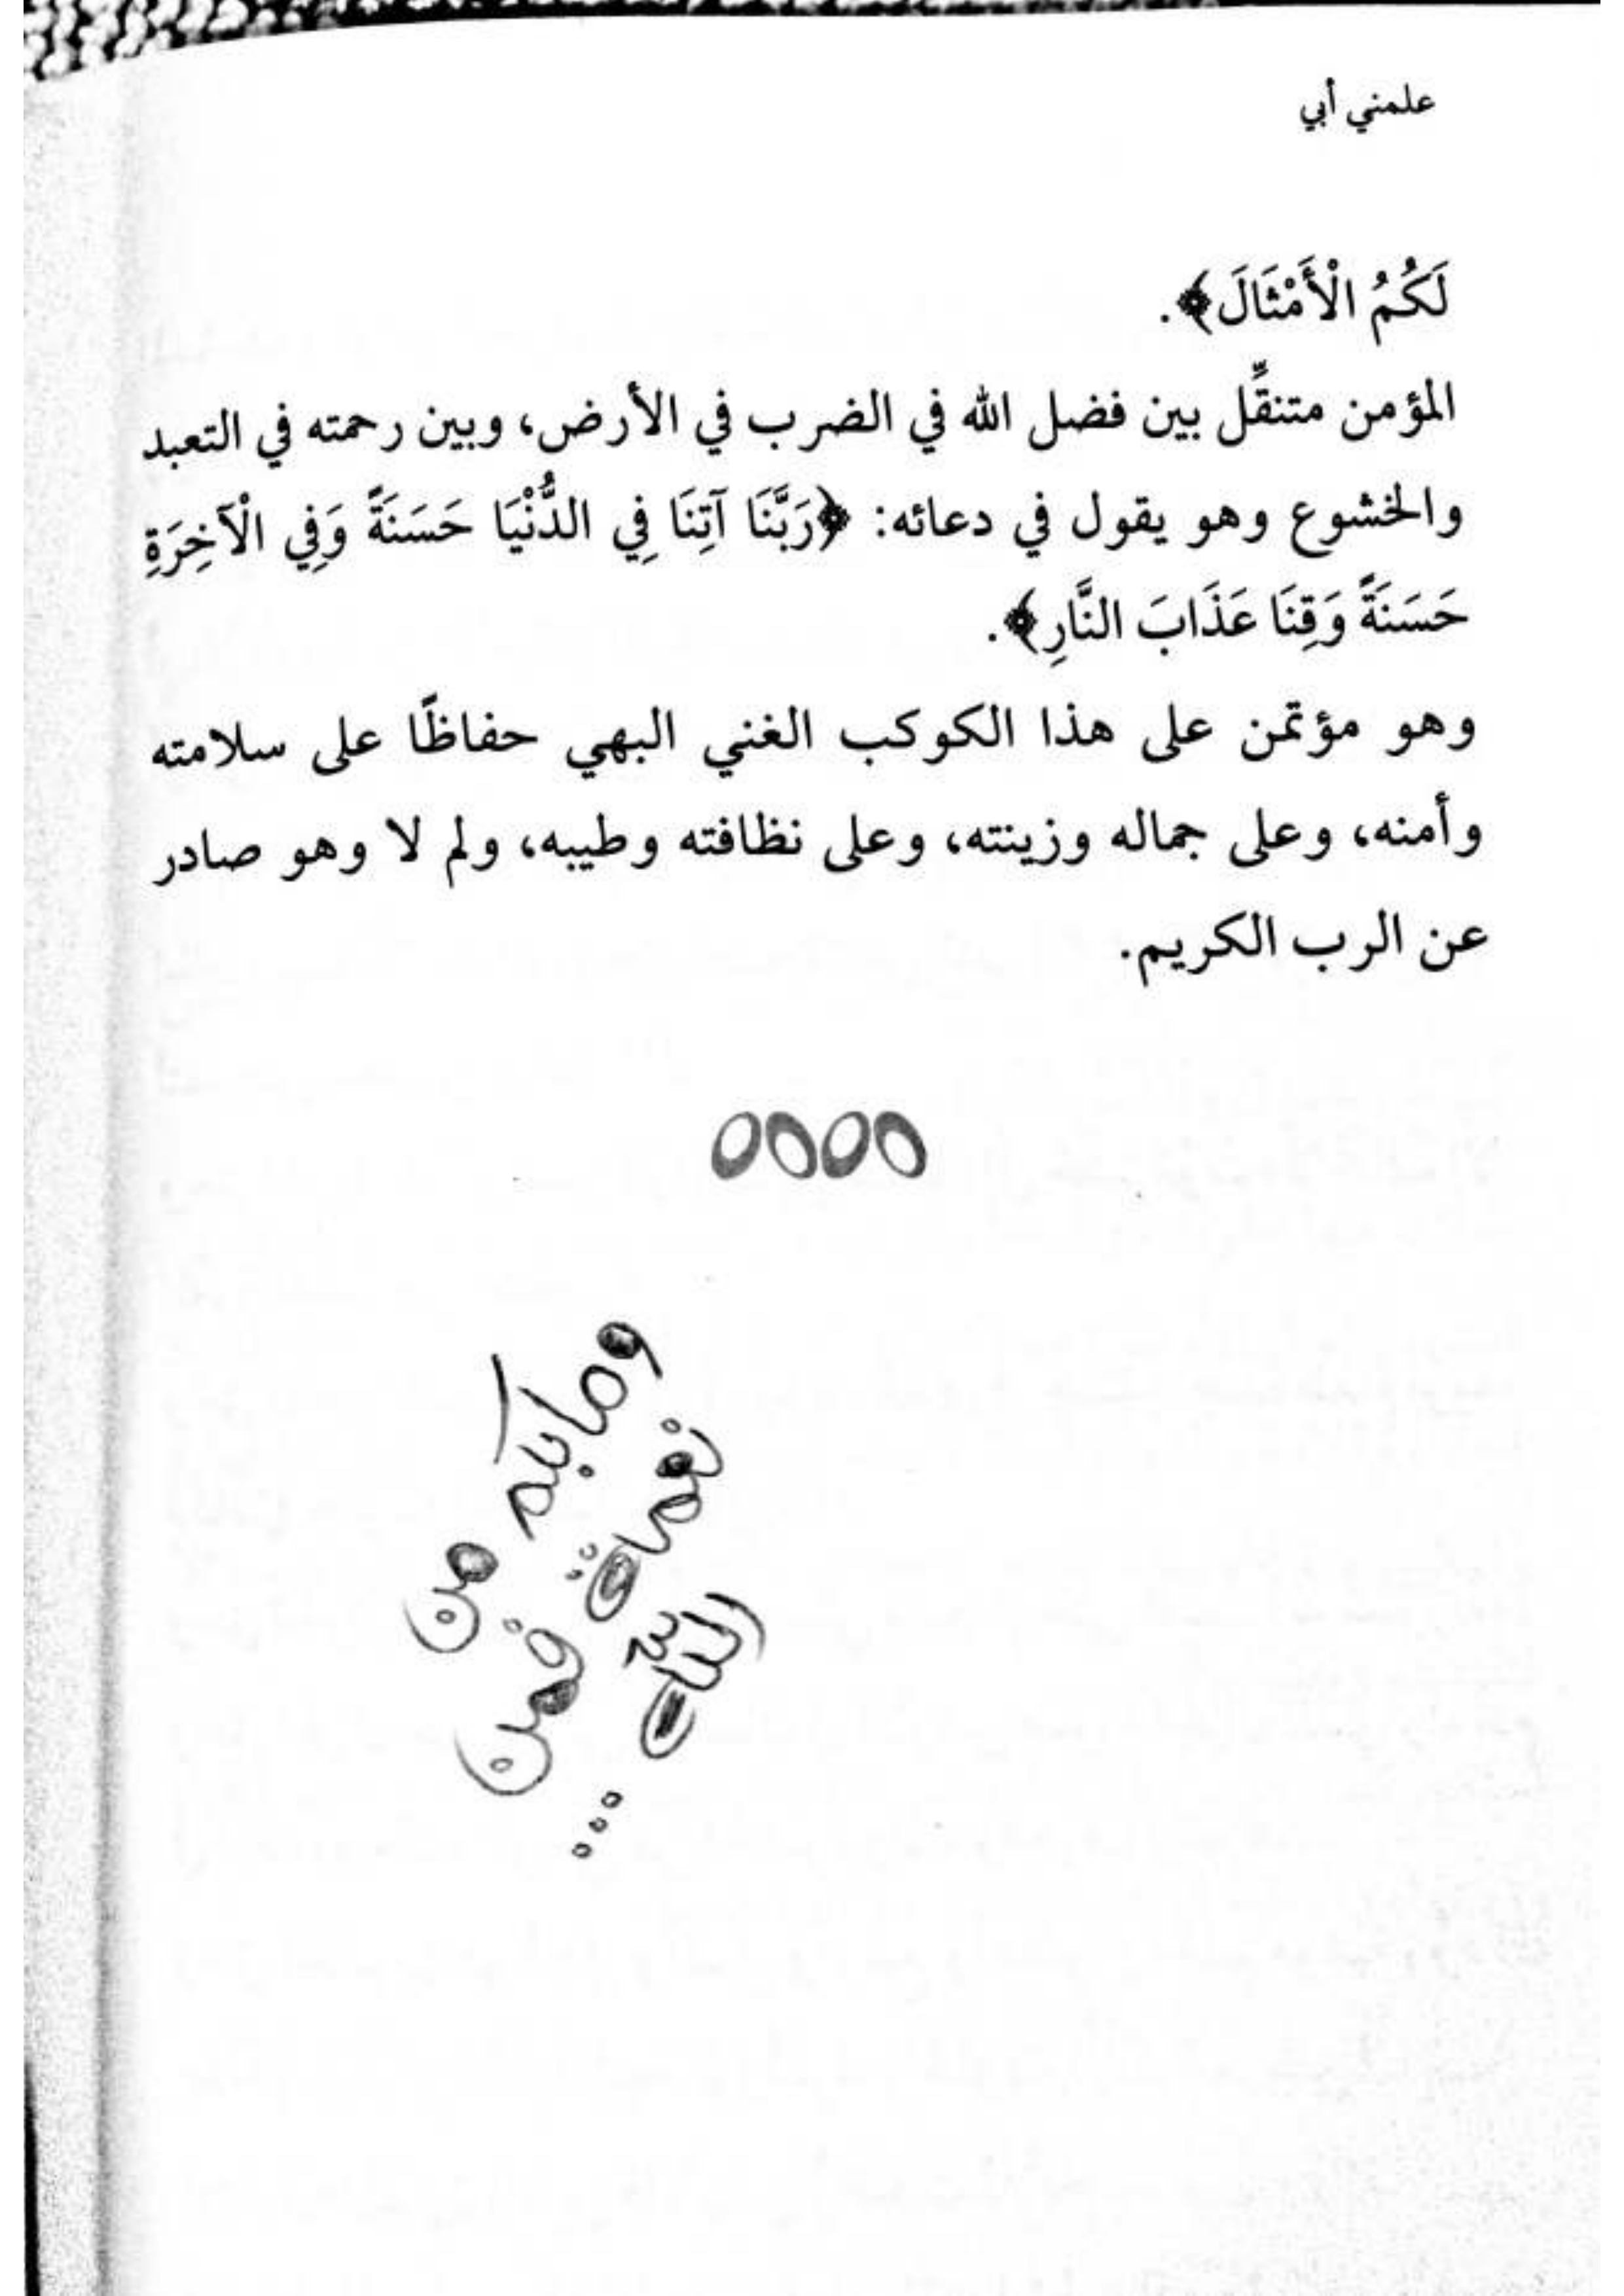 علمني أبي
لَكُمُ الْأَمْثَالَ﴾.
المؤمن متنقِّل بين فضل الله في الضرب في الأرض، وبين رحمته في التعبد
والخشوع وهو يقول في دعائه: ﴿رَبَّنَا آتِنَا فِي الدُّنْيَا حَسَنَةً وَفِي الْآخِرَةِ
حَسَنَةً وَقِنَا عَذَابَ النَّارِ﴾.
وهو مؤتمن على هذا الكوكب الغني البهي حفاظًا على سلامته
وأمنه، وعلى جماله وزينته، وعلى نظافته وطيبه، ولم لا وهو صادر
عن الرب الكريم.
وما بكم من
نعمة فمن
الله ...